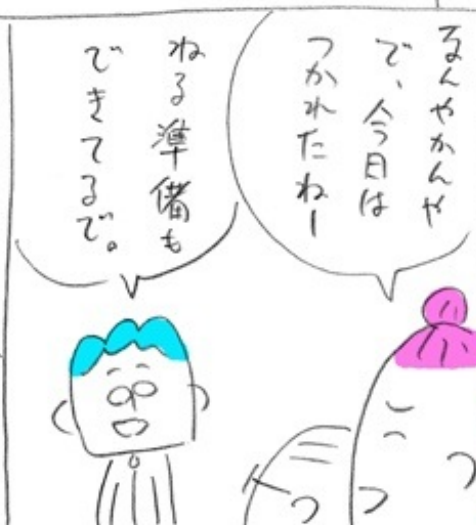 なんやかんや
で、今日は
つかれたねー
ねる準備も
できてるで。